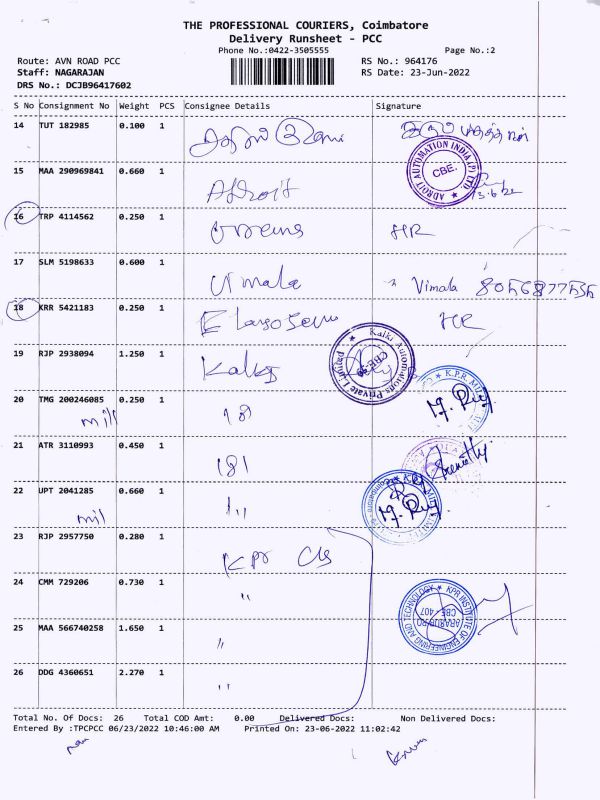 THE PROFESSIONAL COURIERS, Coimbatore
Delivery Runsheet - PCC
Phone No.:0422-3505555
Page No.:2
Route: AVN ROAD PCC
RS No.: 964176
Staff: NAGARAJAN
RS Date: 23-Jun-2022
DRS No.: DCJB96417602
S No Consignment No Weight PCS Consignee Details Signature
14 TUT 182985 0.100 1
15 MAA 290969841 0.660 1 Adroit ADROIT AUTOMATION INDIA (P) LTD. CBE.
16 TRP 4114562 0.250 1 HR
17 SLM 5198633 0.600 1 Vimala Vimala
18 KRR 5421183 0.250 1 HR
19 RJP 2938094 1.250 1 Kalki Kalki Automations Private Limited
20 TMG 200246085 0.250 1 181
mill
21 ATR 3110993 0.450 1 181
22 UPT 2041285 0.660 1 "
mil
23 RJP 2957750 0.280 1 KPR
24 CMM 729206 0.730 1 " KPR INSTITUTE OF ENGINEERING AND TECHNOLOGY
25 MAA 566740258 1.650 1 "
26 DDG 4360651 2.270 1 "
Total No. Of Docs: 26 Total COD Amt: 0.00 Delivered Docs: Non Delivered Docs:
Entered By :TPCPCC 06/23/2022 10:46:00 AM Printed On: 23-06-2022 11:02:42